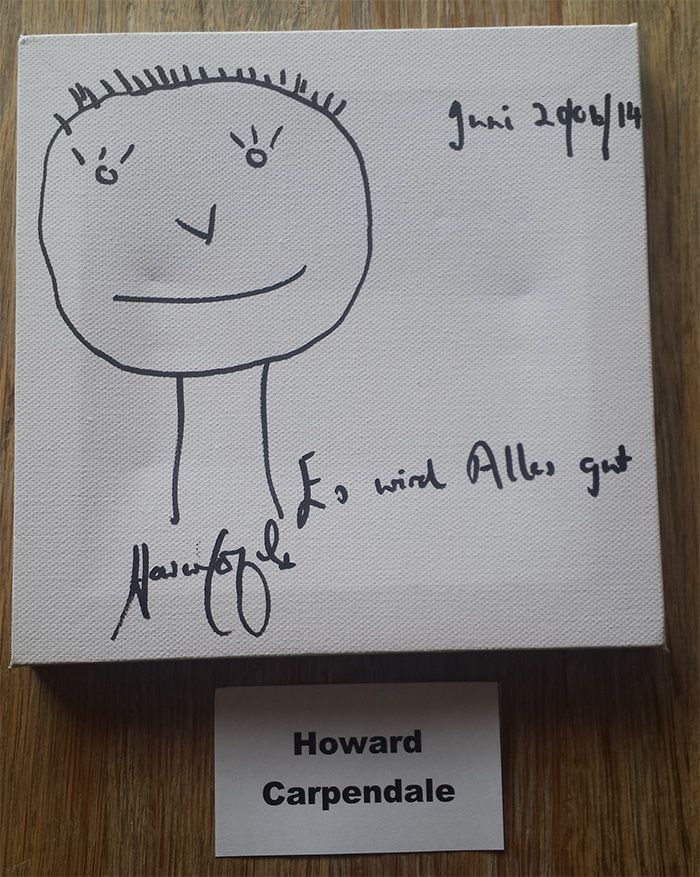 Juni 20/06/14
Es wird Alles gut
Howard
Carpendale